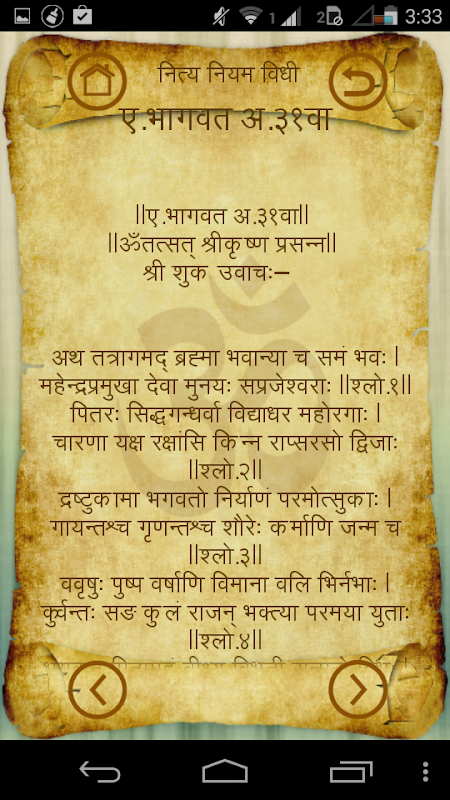 1 2 3:33
नित्य नियम विधी
ए.भागवत अ.३१वा
||ए.भागवत अ.३१वा||
||ॐतत्सत् श्रीकृष्ण प्रसन्न||
श्री शुक उवाचः–
अथ तत्रागमद् ब्रह्मा भवान्या च समं भवः |
महेन्द्रप्रमुखा देवा मुनयः सप्रजेश्वराः ||श्लो.१||
पितरः सिद्धगन्धर्वा विद्याधर महोरगाः |
चारणा यक्ष रक्षांसि किन्न राप्सरसो द्विजाः
||श्लो.२||
द्रष्टुकामा भगवतो निर्याणं परमोत्सुकाः |
गायन्तश्च गृणन्तश्च शौरेः कर्माणि जन्म च
||श्लो.३||
ववृषुः पुष्प वर्षाणि विमाना वलि भिर्नभाः |
कुर्वन्तः सङ कुलं राजन् भक्त्या परमया युताः
||श्लो.४||